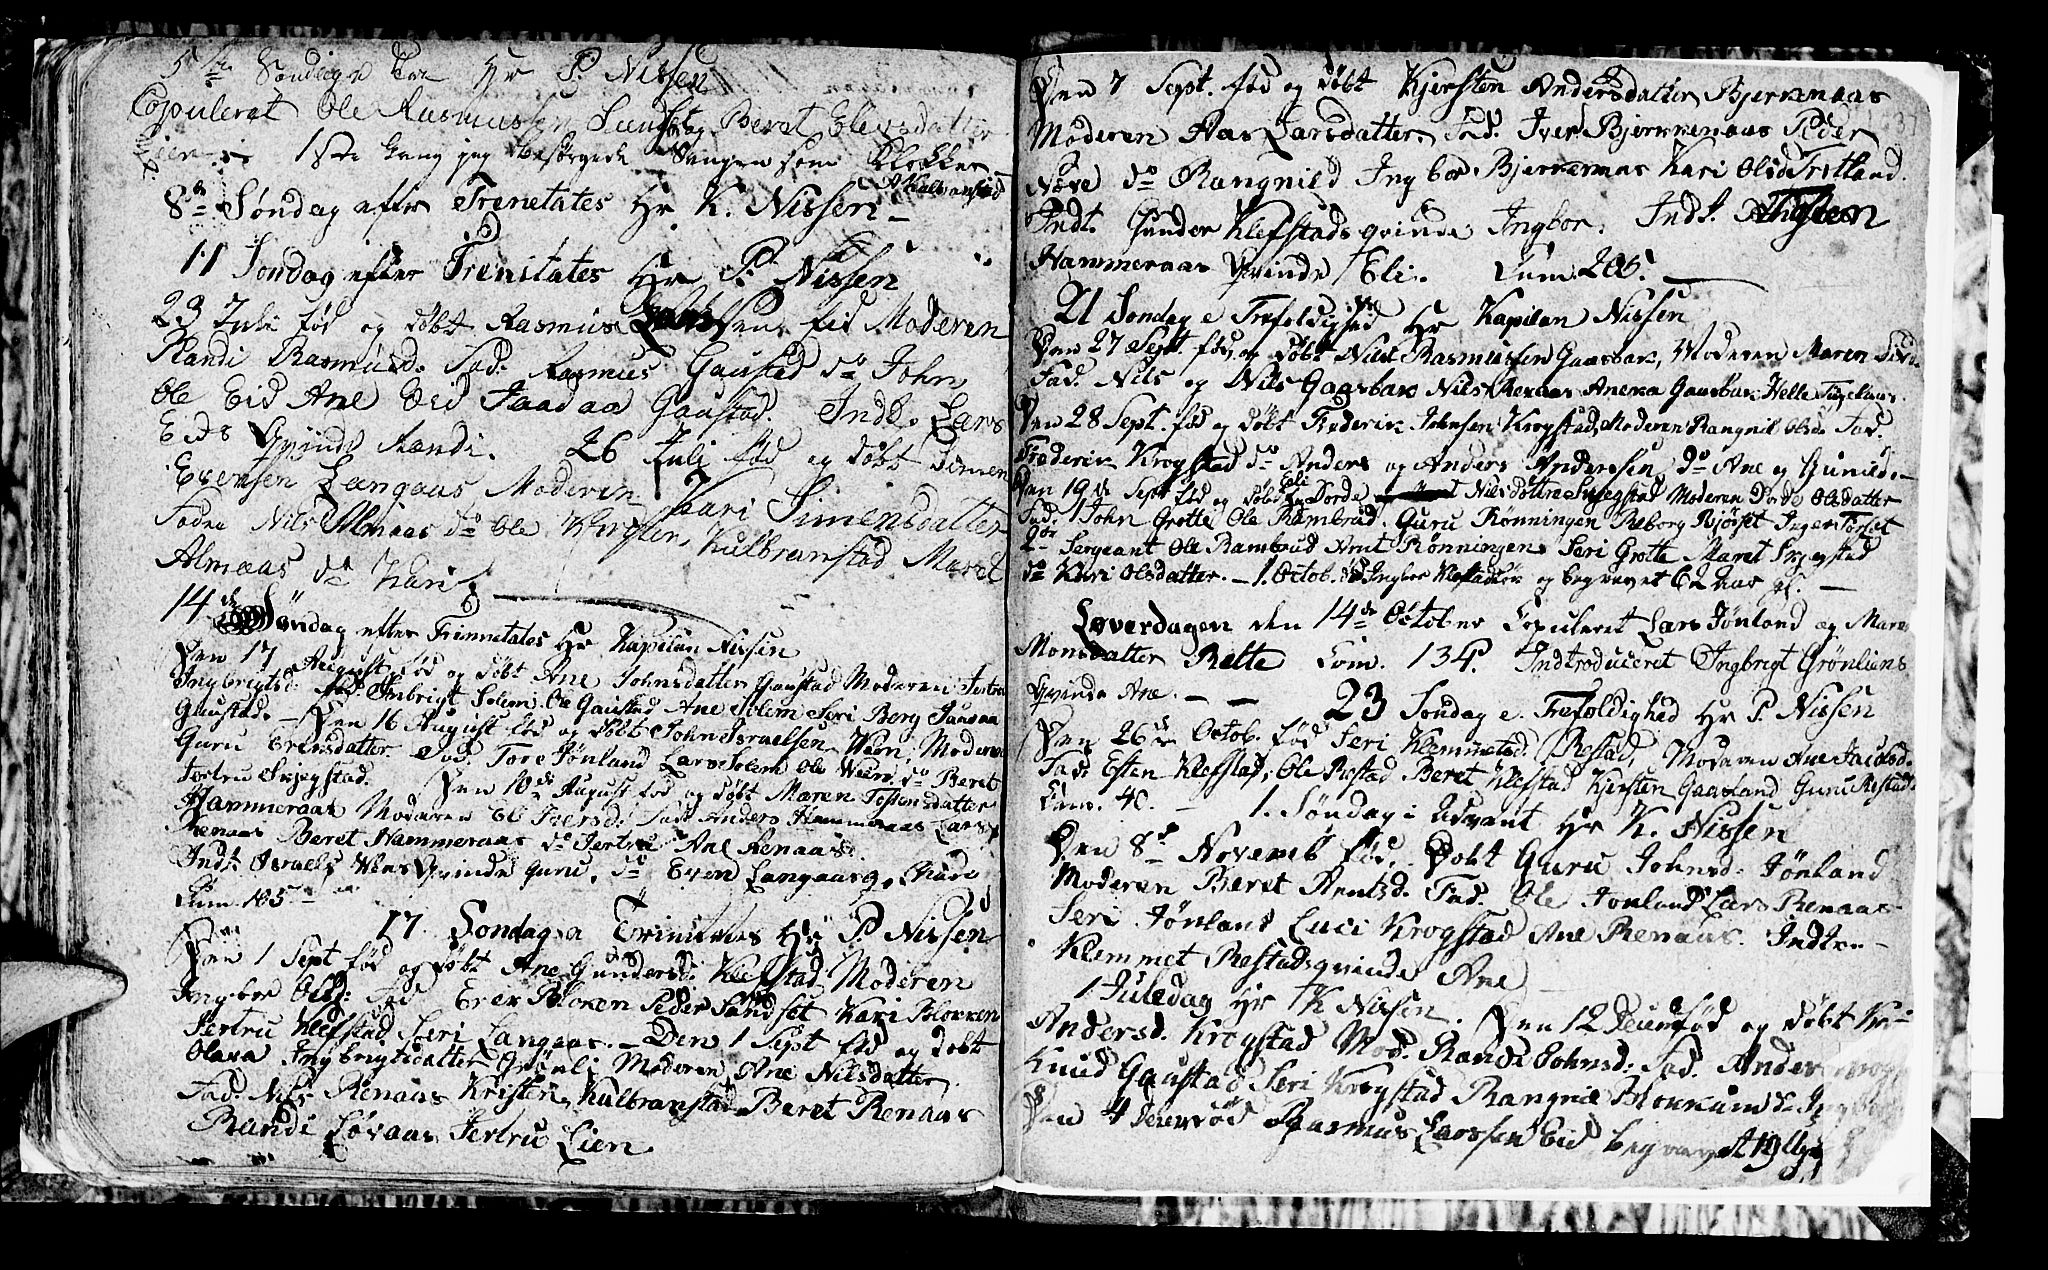 5te Søndag e Tre Hr P. Nissen
Copuleret Ole Rasmussen Sundset og Beret Elevsdatter
Lien - 1ste Gang jeg besørgede Sangen som Klokker
A Kulbranstad
8de Søndag after Trenetates Hr K. Nissen -
11 Søndag efter Trenitates Hr P. Nissen
23 Juli fød og døbt Rasmus Larssen Eid Moderen
Randi Rasmusd. Fad. Rasmus Gaustad do John
Ole Eid Ane Eid Gaustad. Indt. Lars
Eids Qvinde Randi. 26 Juli fød og døbt Simen
Evensen Langaas Moderen Kari Simensdatter
Fadre Nils Almaas do Ole Kersten Kulbranstad Maret
Almaas do Kari
14de Søndag efter Trinnetates Hr Kapilan Nissen
Den 17 August fød og døbt Ane Johnsdatter Gaustad Moderen Jertru
Ingbrigtsd. Fad. Imbrigt Solem Ole Gaustad Ane Solem Seri Berg
Gaustad. - Den 16 August fød og døbt John Israelsen Moderen
Guru Erensdatter Fad. Tore Jönland Lars Solem Ole do Beret
Jertru Skjegstad. Den 10de August fød og døbt Maren Tostensdatter
Hammeraas Moderen Eli Iversd. Fad. Anders Hammeraas Lars
Renaas Beret Hammeraas do Jertru Ane Renaas.
Indt. Israels Qvinde Guru, do Even Langaas q. Kari
Kum. 105
17. Søndag e Trinitates Hr P. Nissen
Den 1 Sept fød og døbt Ane Gundersd: Klefstad Moderen
Ingbor Olsd: Fad Erek Bloken Peder Sandset Kari Blokken
Jertru Klefstad Seri Langaas. - Den 1 Sept fød og døbt
Olava Ingbrigtsdatter Grönli Moderen Ane Nilsdatter
Fad. Nils Renaas Kristen Kulbranstad Beret Renaas
Randi Løvaas Jertru Lien
Den 7 Sept. fød og døbt Kjersten Andersdatter Bjerkenaas
Moderen Larsdatter Fad. Iver Bjerkkenaas Peder
Næve do Rangnild Ingbor Bjerkenaas Kari Olsd Tretland.
Indt. Gunder Klefstads qvinde Ingbor. Indt. Thosten
Hammeraas Qvinde Eli. Kum. 206.
21 Søndag e Trefoldighed Hr Kapilan Nissen
Den 27 Sept. fød og døbt Nils Rasmussen Gaasbak, Moderen Maren
Fad. Nils og Nils Gaasbak Nils Renaas Gaasbak Helle
Den 28 Sept. fød og døbt Frederik Johnsen Krogstad, Moderen Rangnil Olsd. Fad.
Frederik Krogstad do Anders og Anders Anderssen do Ane og Gunild. -
Den 19de Sept fød og døbt Eli og Dorde Nilsdöttre Skjegstad Moderen Dorde Olsdatter
Fad. 1 John Grotte Ole Rambrud. Guru Rönningen Reborg Bjørset Inger Torset
2den Sergeant Ole Rambrud Arnt Rønningen Seri Grotte Maret Skjegstad
do Kari Olsdatter. - 1. Octob. død Ingbor og begravet 62 aar gl. -
Løverdagen den 14de October Copuleret Lars Jönland og Mare
Monsdatter Rotte Kom. 134. Indtroduceret Ingbrigt Grönliens
Qvinde Ane. - - 23 Søndag e. Trefoldighed Hr P. Nissen
Den 26de Octob. fød Seri Klemmetsd. Restad, Moderen Ane Jacobsd.
Fad: Esten Klefstad, Ole Restad Beret Klefstad Kjersten Gaasland Guru Restad.
Kom. 40. - 1. Søndag i Advent Hr K. Nissen
Den 8de Novemb fød, Døbt Guru Johnsd: Jönland
Moderen Beret Arntsd. Fad. Ole Jonland Lars Renaas
Seri Jönland Luci Krogstad Ane Renaas. Indtro-
Klemmet Restads qvinde Ane
1 Juledag Hr K Nissen. Den 12 Decem fød og døbt Kri-
Andersd. Krogstad Mod. Randi Johnsd: Fad. Anders Krog
Knud Gaustad Seri Krogstad Rangnil Blokkum do Ingbor
Den 4 Decem død Rasmus Larssen Eid begravet 19 Uger